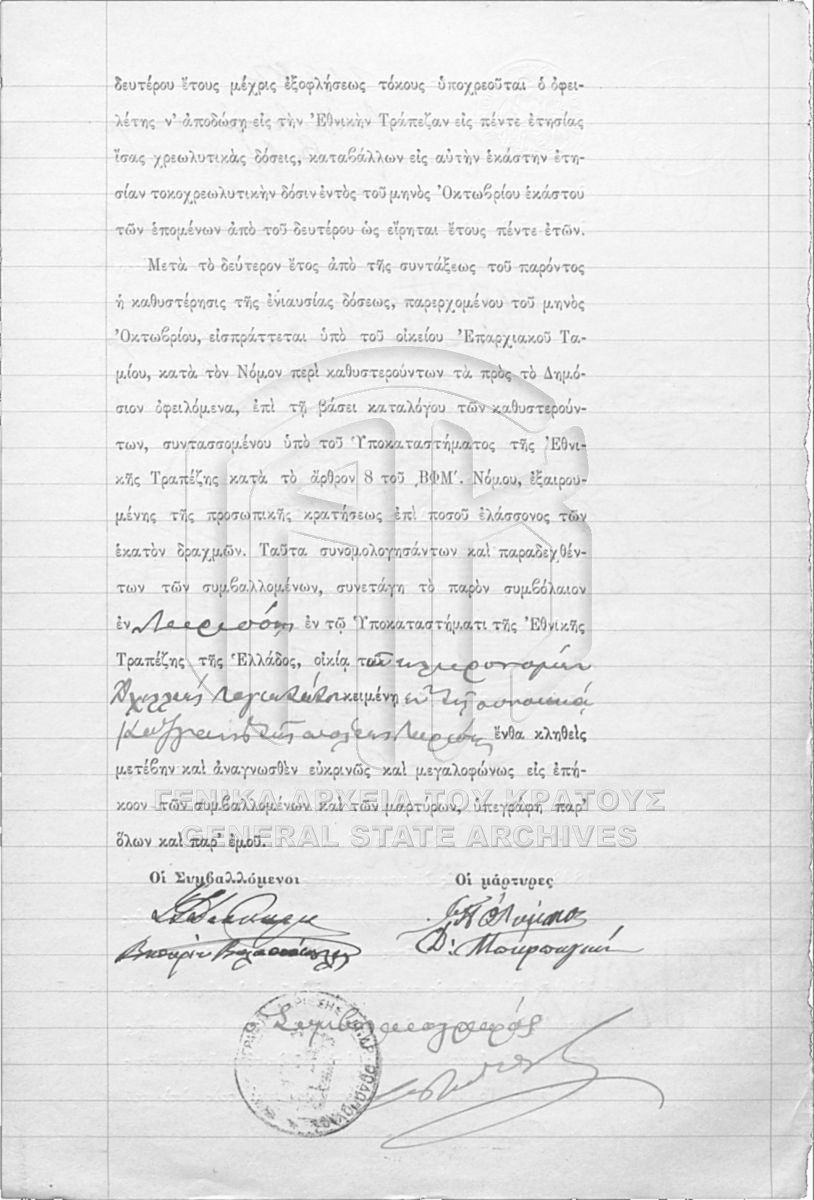 δευτέρου ἔτους μέχρις ἐξοφλήσεως τόκους ὑποχρεοῦται ὁ ὀφει-
λέτης ν' ἀποδώσῃ εἰς τὴν Ἐθνικὴν Τράπεζαν εἰς πέντε ἐτησίας
ἴσας χρεωλυτικὰς δόσεις, καταβάλλων εἰς αὐτὴν ἑκάστην ἐτη-
σίαν τοκοχρεωλυτικὴν δόσιν ἐντὸς τοῦ μηνὸς Ὀκτωβρίου ἑκάστου
τῶν ἑπομένων ἀπὸ τοῦ δευτέρου ὡς εἴρηται ἔτους πέντε ἐτῶν.
Μετὰ τὸ δεύτερον ἔτος ἀπὸ τῆς συντάξεως τοῦ παρόντος
ἡ καθυστέρησις τῆς ἐνιαυσίας δόσεως, παρερχομένου τοῦ μηνὸς
Ὀκτωβρίου, εἰσπράττεται ὑπὸ τοῦ οἰκείου Ἐπαρχιακοῦ Τα-
μίου, κατὰ τὸν Νόμον περὶ καθυστερούντων τὰ πρὸς τὸ Δημό-
σιον ὀφειλόμενα, ἐπὶ τῇ βάσει καταλόγου τῶν καθυστερούν-
των, συντασσομένου ὑπὸ τοῦ Ὑποκαταστήματος τῆς Ἐθνι-
κῆς Τραπέζης κατὰ τὸ ἄρθρον 8 τοῦ ͵ΒΦΜ΄. Νόμου, ἐξαιρου-
μένης τῆς προσωπικῆς κρατήσεως ἐπὶ ποσοῦ ἐλάσσονος τῶν
ἑκατὸν δραχμῶν. Ταῦτα συνομολογησάντων καὶ παραδεχθέν-
των τῶν συμβαλλομένων, συνετάγη τὸ παρὸν συμβόλαιον
ἐν Λαρίσσῃ ἐν τῷ Ὑποκαταστήματι τῆς Ἐθνικῆς
Τραπέζης τῆς Ἑλλάδος, οἰκίᾳ τῶν κληρονόμων
κειμένῃ ἐν τῇ συνοικίᾳ
τῆς πόλεως Λαρίσσης ἔνθα κληθεὶς
μετέβην καὶ ἀναγνωσθὲν εὐκρινῶς καὶ μεγαλοφώνως εἰς ἐπή-
κοον τῶν συμβαλλομένων καὶ τῶν μαρτύρων, ὑπεγράφη παρ'
ὅλων καὶ παρ' ἐμοῦ.
ΓΕΝΙΚΑ ΑΡΧΕΙΑ ΤΟΥ ΚΡΑΤΟΥΣ
GENERAL STATE ARCHIVES
Οἱ Συμβαλλόμενοι Οἱ μάρτυρες
Συμβολαιογράφος